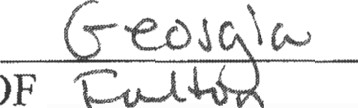 Georgia
OF Fulton